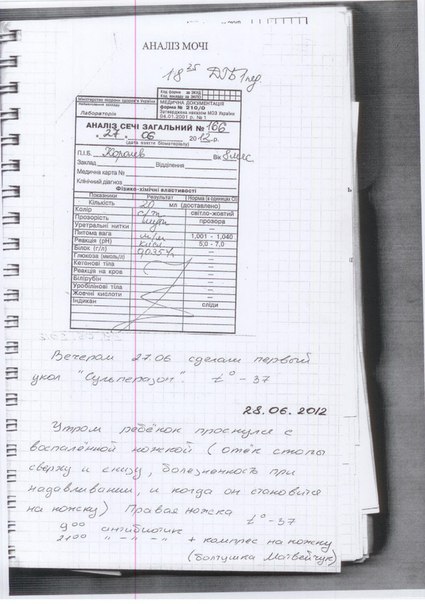 АНАЛІЗ МОЧІ
18 25
Код форми за ЗКУД
Код закладу за ЗКПО
Міністерство охорони здоров'я України
Найменування закладу
МЕДИЧНА ДОКУМЕНТАЦІЯ
форма № 210/0
Затверджена наказом МОЗ України
04.01.2001 р. № 1
Лабораторія
АНАЛІЗ СЕЧІ ЗАГАЛЬНИЙ № 166
27. 06 2012р.
(дата взяття біоматеріалу)
П.І.Б. Королев Вік 8 мес
Заклад Відділення
Медична карта №
Клінічний діагноз
Фізико-хімічні властивості
Показники Результат Норма (в одиницях СІ)
Кількість 20 мл (доставлено)
Колір с/ж світло-жовтий
Прозорість прозора
Уретральні нитки —
Питома вага м/м 1,001 - 1,040
Реакція (pH) кисл 5,0 - 7,0
Білок (г/л) 0,035 —
Глюкоза (ммоль/л) —
Кетонові тіла —
Реакція на кров —
Білірубін —
Уробілінові тіла —
Жовчні кислоти —
Індикан сліди
Вечером 27.06 сделали первый
укол "Сульперазон". t° - 37
28.06.2012
Утром ребёнок проснулся с
воспалённой ножкой (отёк стопы
сверху и снизу, болезненность при
надавливании, и когда он становится
на ножку) Правая ножка t° - 37
9 00 антибиотик
21 00 " — " — " + компрес на ножку
(Болтушка Матвейчук)